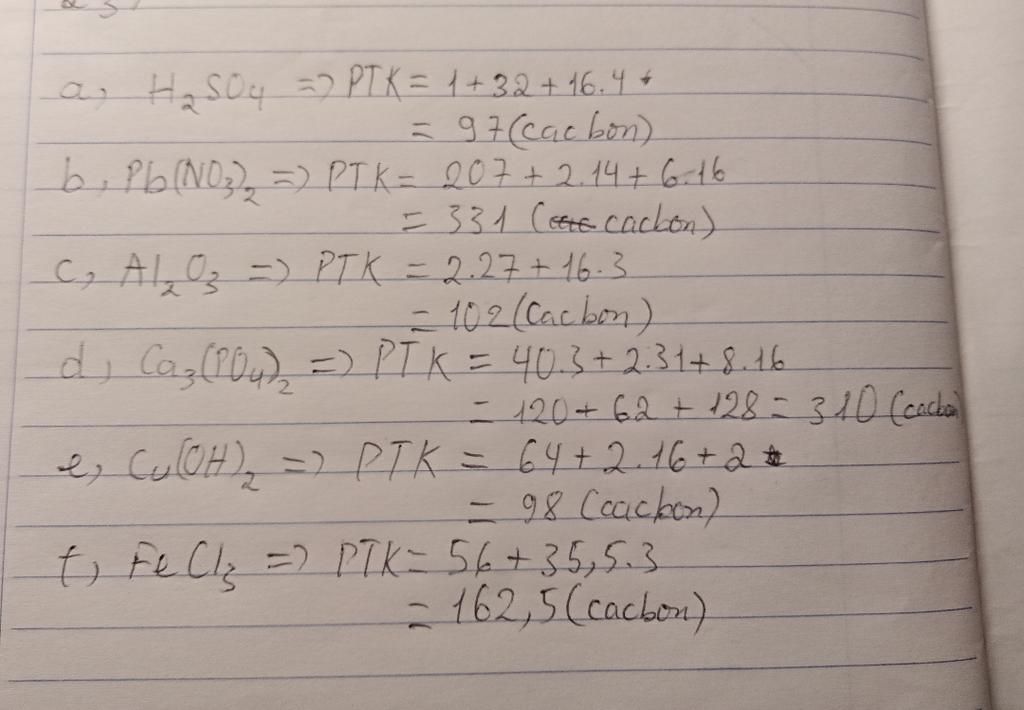 a, H₂SO₄ => PTK = 1+32+16.4
= 97(cacbon)
b, Pb(NO₃)₂ => PTK = 207 + 2.14 + 6.16
= 331 (cacbon)
c, Al₂O₃ => PTK = 2.27+16.3
= 102(Cacbon)
d, Ca₃(PO₄)₂ => PTK = 40.3+2.31+8.16
= 120+ 62 + 128 = 310 (cacbon)
e, Cu(OH)₂ => PTK = 64+2.16+2
= 98 (cacbon)
f, FeCl₃ => PTK= 56+35,5.3
= 162,5(cacbon)